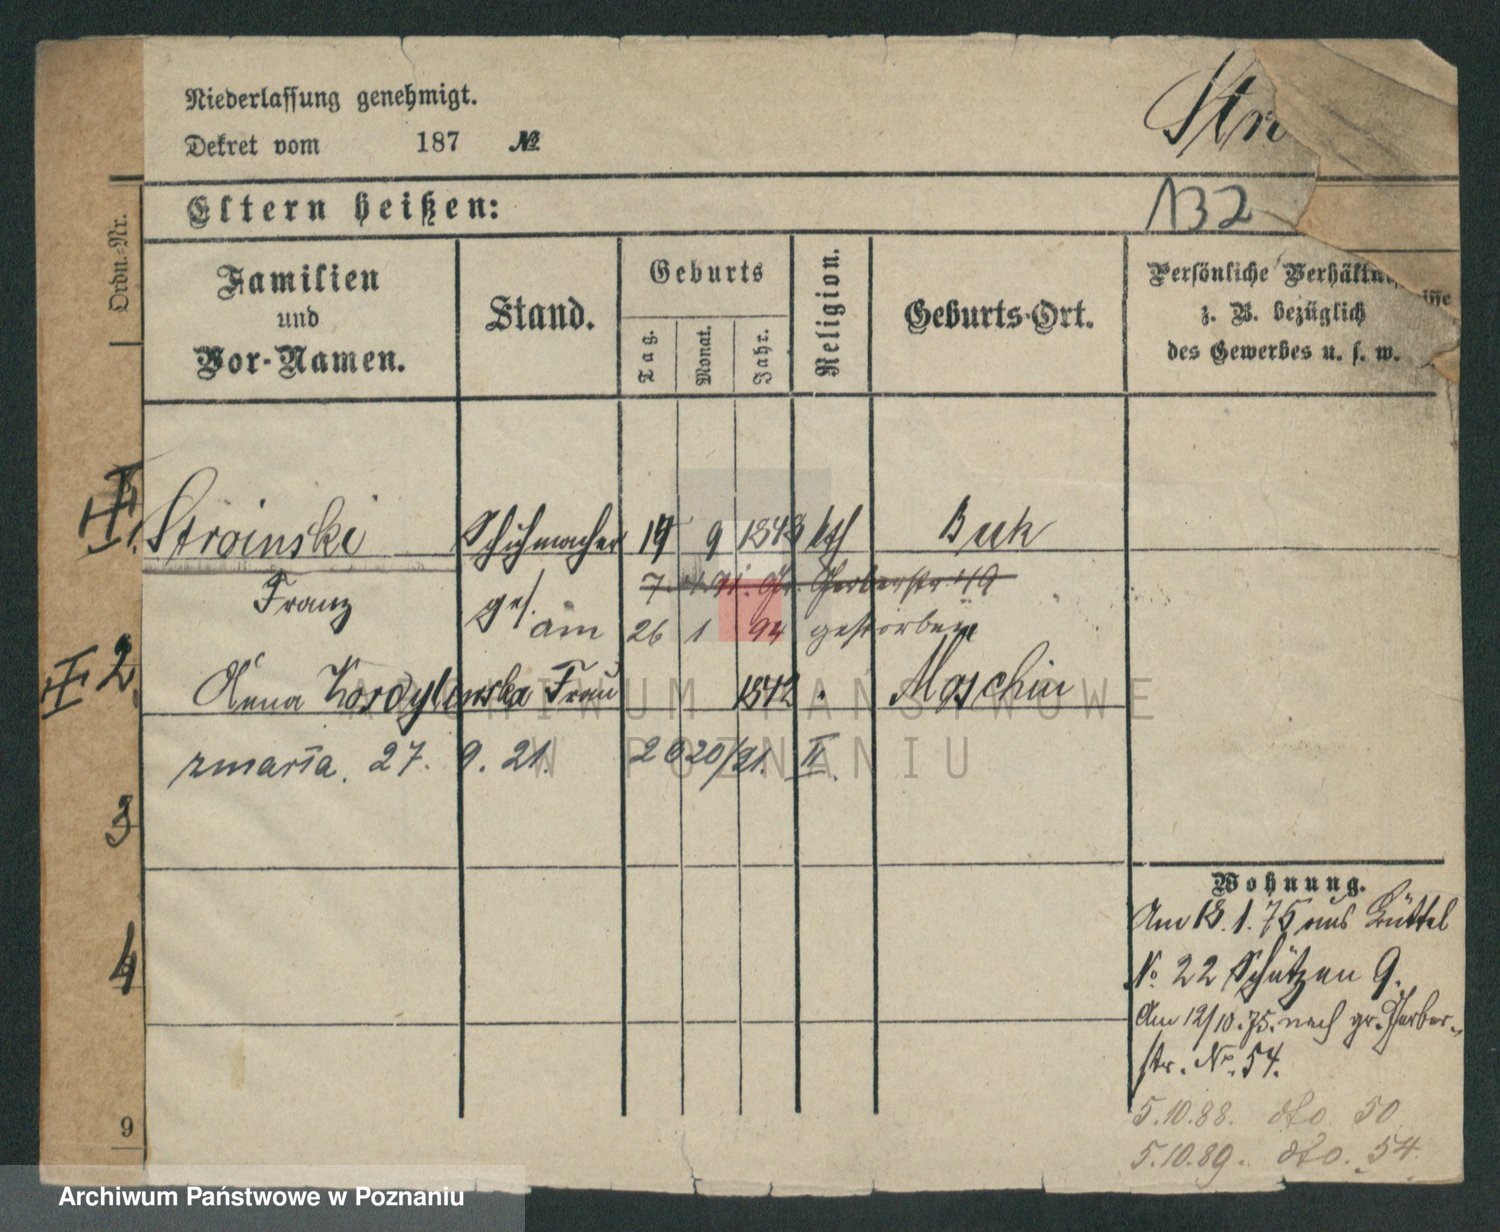 Niederlassung genehmigt.
Dekret vom 187 №
Str
Eltern heißen:
132
Ordn.-Nr.
Familien
und
Vor-Namen.
Stand.
Geburts
Tag.
Monat.
Jahr.
Religion.
Geburts-Ort.
Persönliche Verhältnisse
z. B. bezüglich
des Gewerbes u. s. w.
1. Stroinski Schuhmacher 19 9 1848 kth Buk
Franz gest.
am 26 1 94 gestorben
2. Anna Kordylewska Frau 1842 Moschin
zmarła. 27. 9. 21. 2020/21. II.
3
4
Wohnung.
Am 18. 1. 75 aus Büttel
No 22 Schützen 9.
Am 12/10.75. nach gr. Gerber-
str. No. 54.
5.10.88. dto. 50
5.10.89. dto. 54.
9
ARCHIWUM PAŃSTWOWE
W POZNANIU
Archiwum Państwowe w Poznaniu